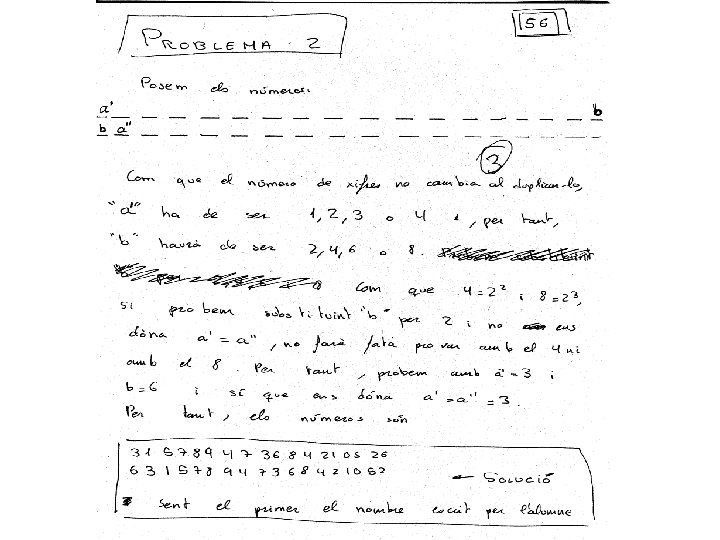 PROBLEMA 2
56
Posem els números:
a' b
b a"
3
Com que el número de xifres no cambia al duplicar-lo,
"a'" ha de ser 1, 2, 3 o 4, per tant,
"b" haurà de ser 2, 4, 6 o 8.
Com que 4=2² i 8=2³,
si probem substituint "b" per 2 i no ens
dóna a' = a", no farà falta provar amb el 4 ni
amb el 8. Per tant, probem amb a'=3 i
b=6 i sí que ens dóna a'=a"=3.
Per tant, els números són
315789473684210526
631578947368421052
← SOLUCIÓ
sent el primer el nombre escrit per l'alumne